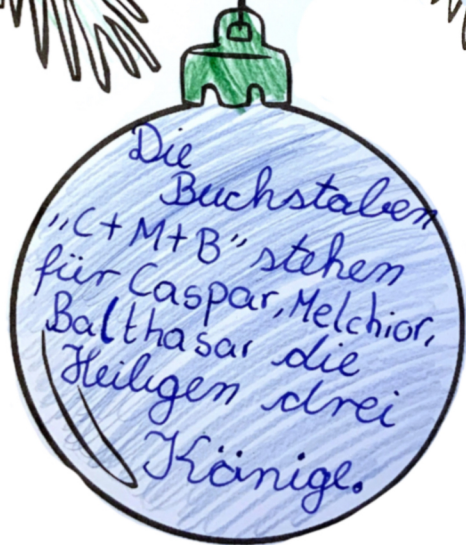 Die
Buchstaben
„C+M+B" stehen
für Caspar, Melchior,
Balthasar die
Heiligen drei
Könige.